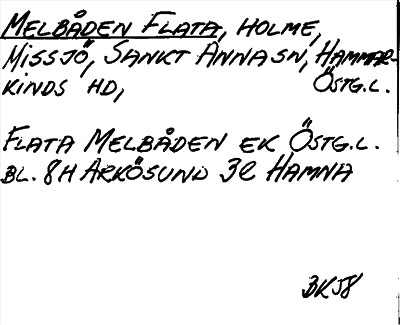 MELBÅDEN FLATA, HOLME,
MISSJÖ, SANKT ANNA SN, HAMMAR-
KINDS HD, ÖSTG.L.
FLATA MELBÅDEN EK ÖSTG.L.
BL. 8H ARKÖSUND 3C HAMNA
BKJ8